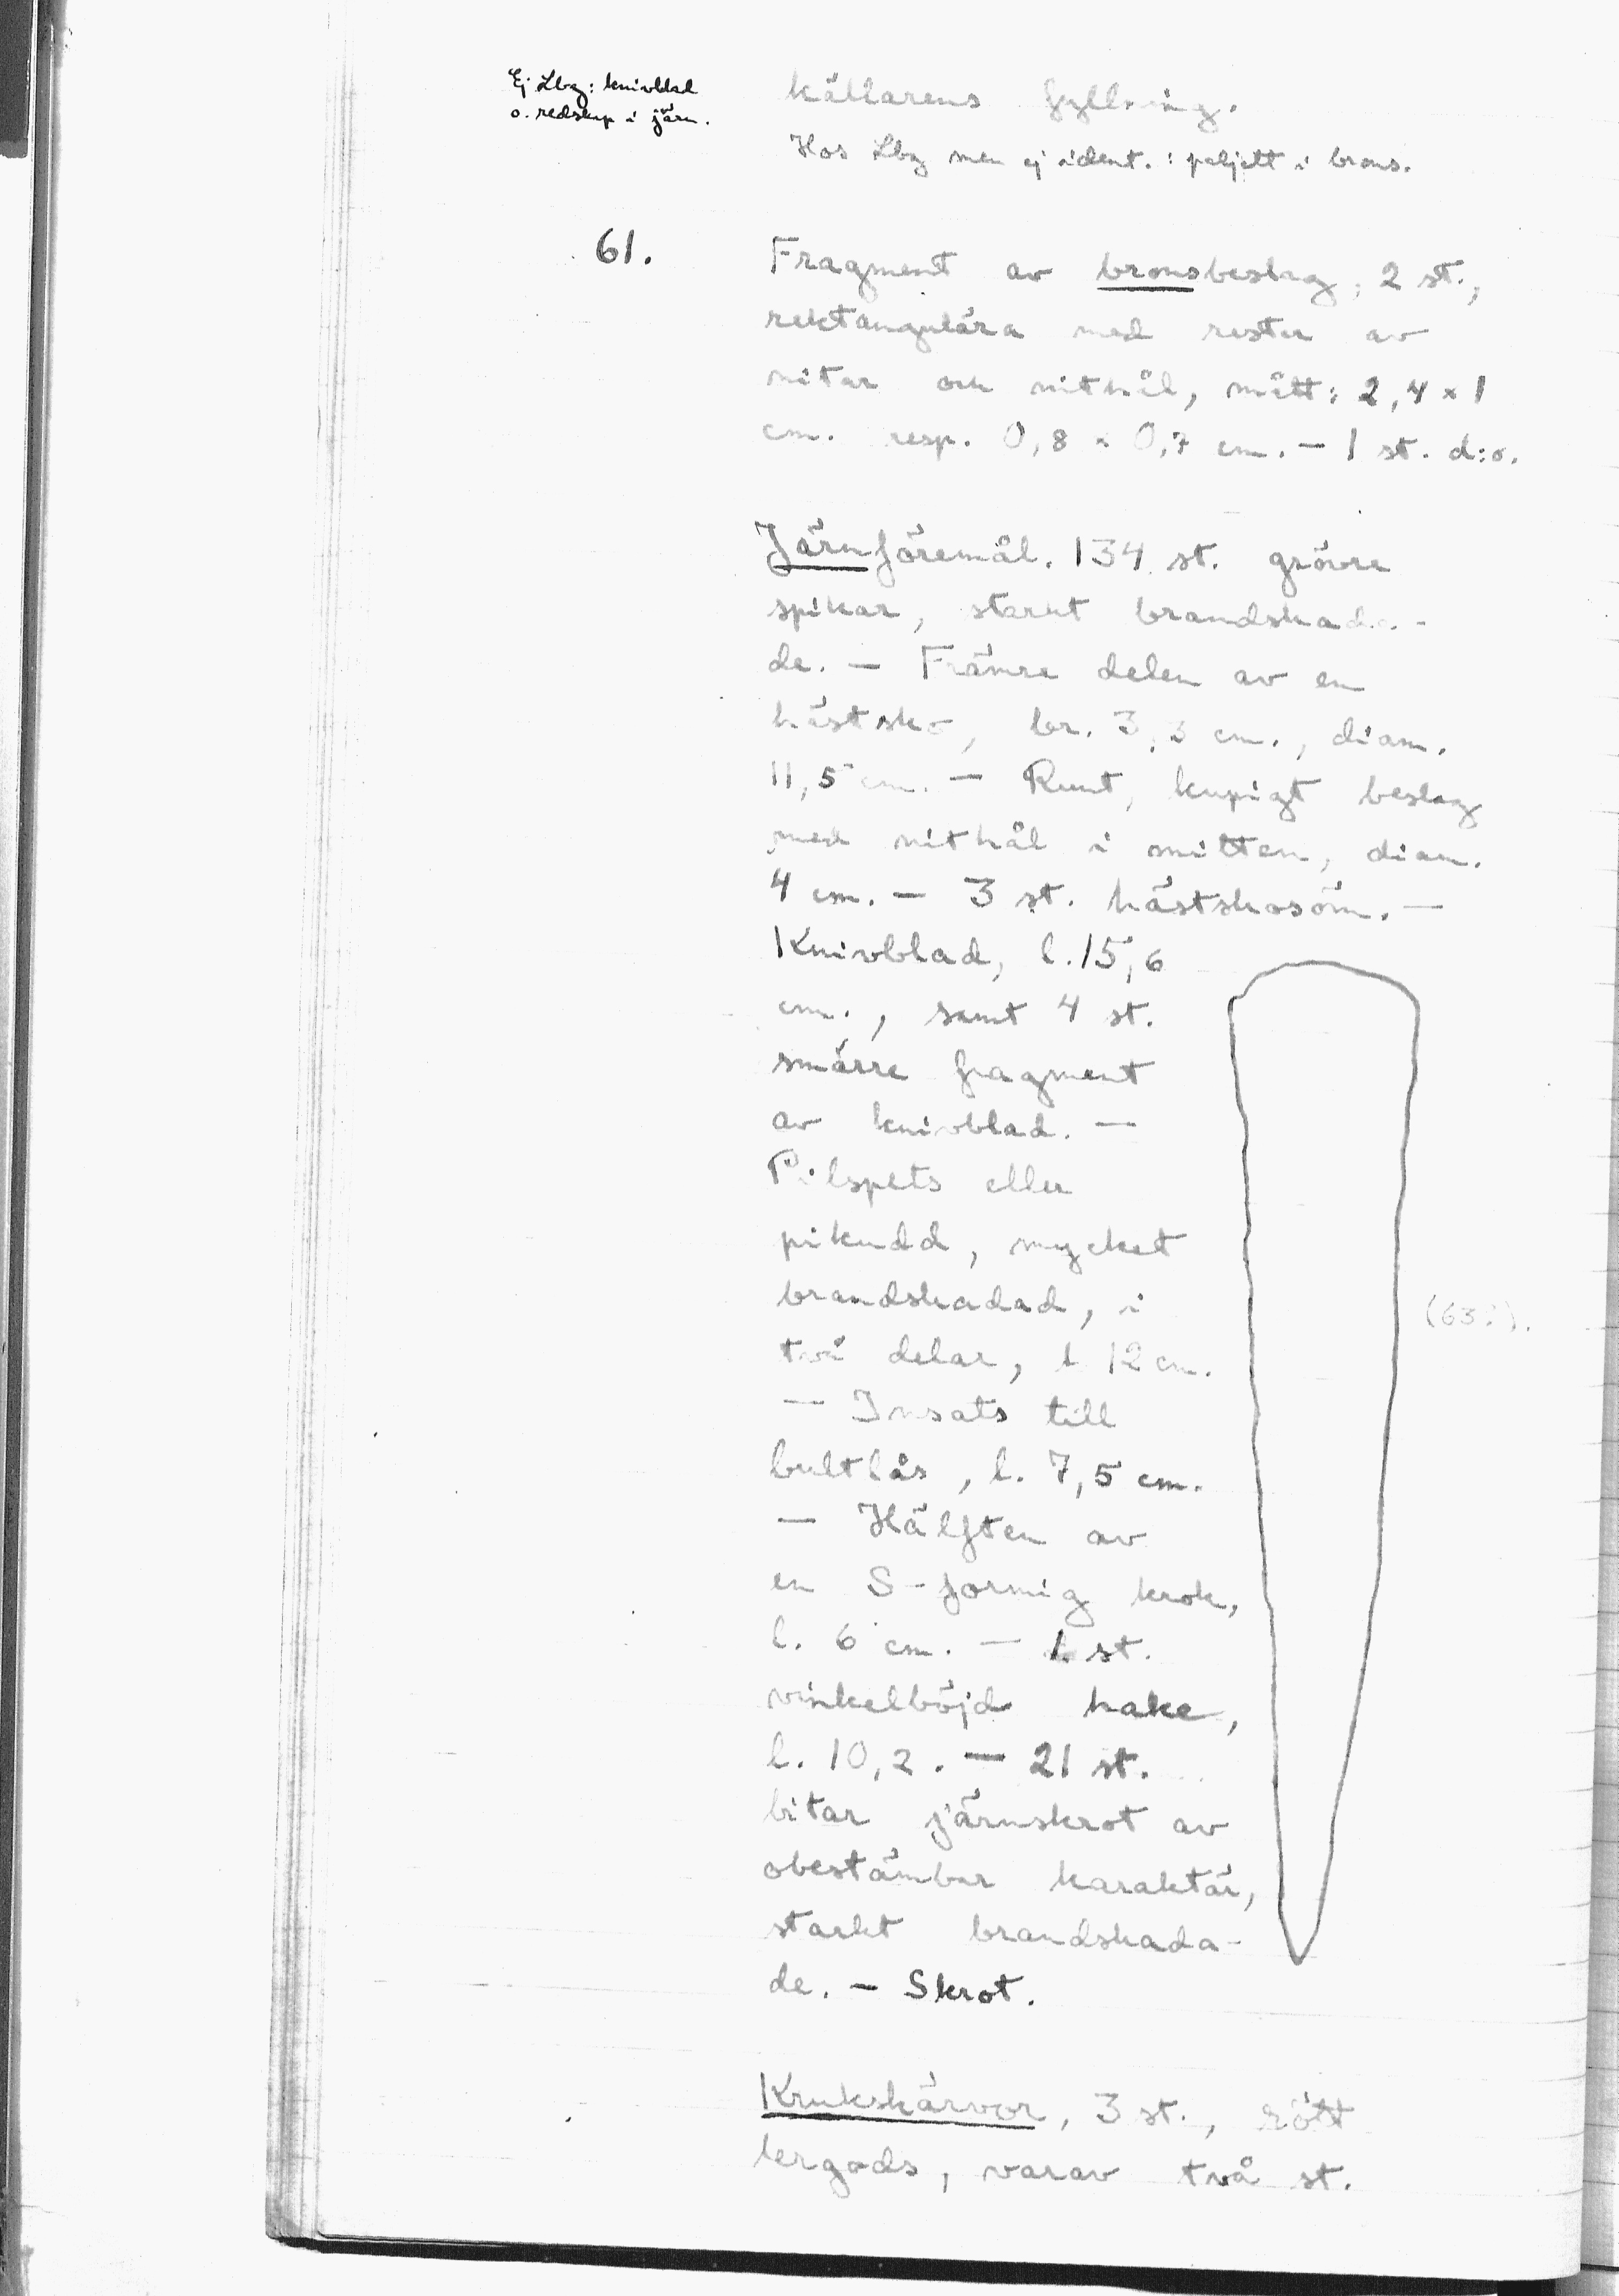 Ej Lbg: knivblad
o. redskap i järn.
källarens fyllning.
Hos Lbg men ej ident.: paljett i brons.
61.
Fragment av bronsbeslag, 2 st.,
rektangulära med rester av
nitar och nithål, mått: 2,4 x 1
cm. resp. 0,8 x 0,7 cm. - 1 st. d:o.
Järnföremål. 134 st. grövre
spikar, starkt brandskada-
de. - Främre delen av en
hästsko, br. 3,3 cm., diam.
11,5 cm. - Runt, kupigt beslag
med nithål i mitten, diam.
4 cm. - 3 st. hästskosöm. -
Knivblad, l. 15,6
cm., samt 4 st.
smärre fragment
av knivblad. -
Pilspets eller
pikudd, mycket
brandskadad, i
två delar, l 12 cm.
- Insats till
bultlås, l. 7,5 cm.
- Hälften av
en S-formig krok,
l. 6 cm. - 1 st.
vinkelböjd hake,
l. 10,2. - 21 st.
bitar järnskrot av
obestämbar karaktär,
starkt brandskada-
de. - Skrot.
(63:).
Krukskärvor, 3 st., rött
lergods, varav två st.